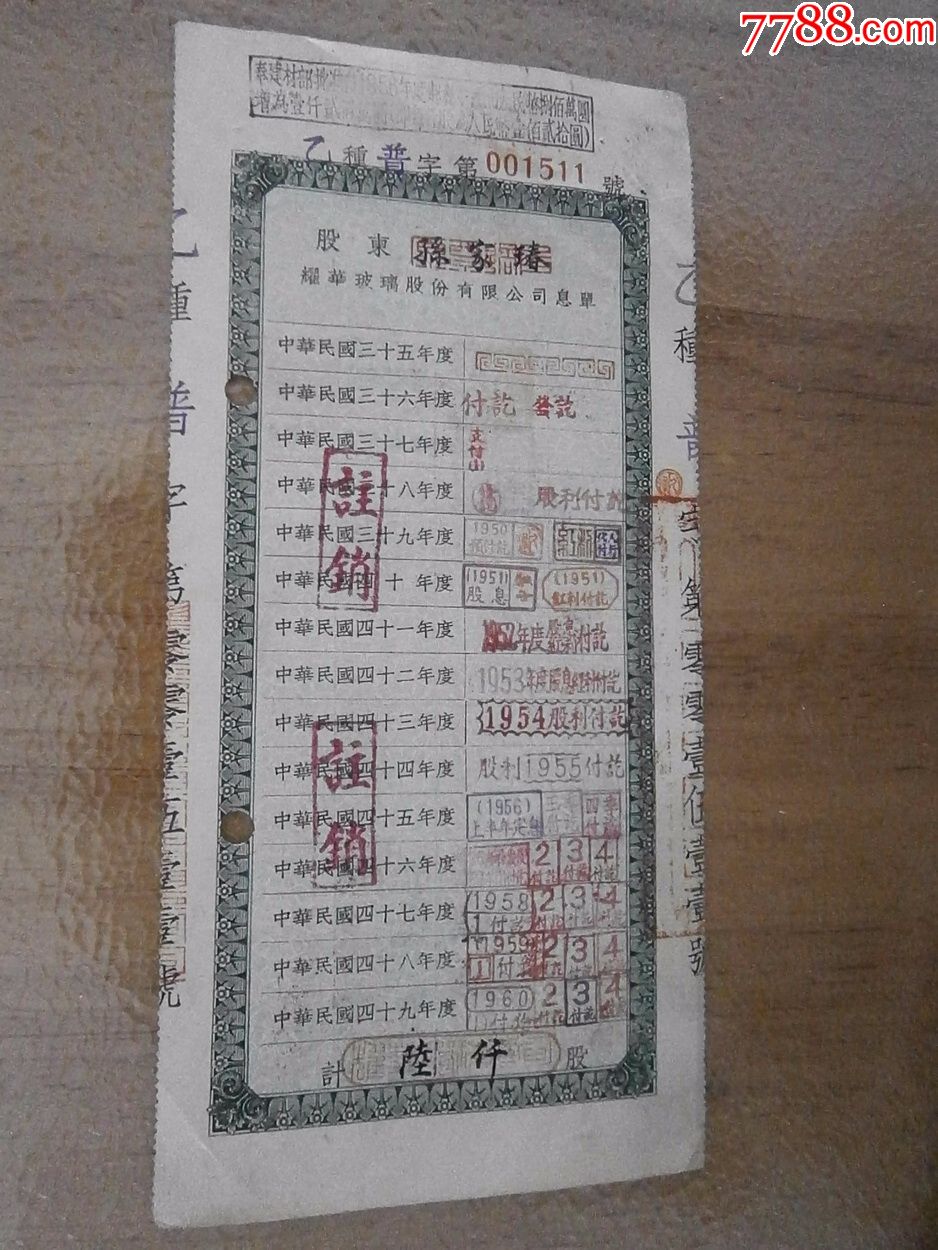 7788.com
奉建材部
捌佰萬圓
增為壹仟貳
人民幣壹佰貳拾圓)
乙種普字第001511號
股東 孫家臻
耀華玻璃股份有限公司息單
中華民國三十五年度
中華民國三十六年度 付訖 發訖
中華民國三十七年度 支付
中華民國三十八年度 股利付訖
中華民國三十九年度 1950 預付訖 紅利
中華民國四十年度 (1951) 股息 (1951) 紅利付訖
中華民國四十一年度 1952年度股息紅利付訖
中華民國四十二年度 1953年度股息紅利付訖
中華民國四十三年度 1954股利付訖
中華民國四十四年度 股利1955付訖
中華民國四十五年度 (1956) 上半年定息 三季付訖 四季付訖
中華民國四十六年度 2付訖 3付訖 4付訖
中華民國四十七年度 1958 1付訖 2付訖 3付訖 4付訖
中華民國四十八年度 1959 1付訖 2付訖 3付訖 4付訖
中華民國四十九年度 1960 1付訖 2付訖 3付訖 4
註銷
註銷
計 陸仟 股
乙種普字第零零壹五壹壹號
乙種普字第零零壹伍壹壹號